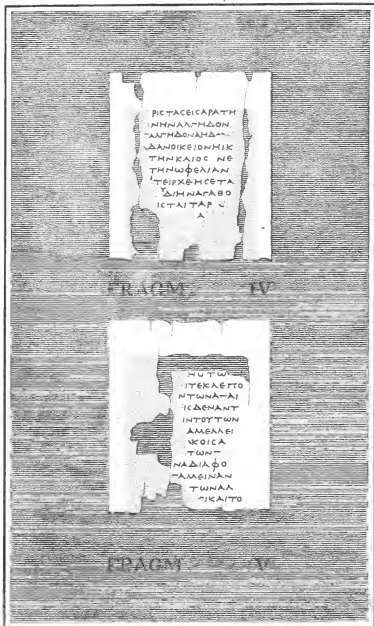 ΡΙCΤΑCΕΙCΑΡΑΤΗ
ΙΝΗΝΑΛΓΗΔΟΝ
ΑΛΓΗΔΟΝΑΗΔ
ΔΑΝΟΙΚΕΙΟΝΗΙΚ
ΤΗΝΚΑΙΟC ΝΕ
ΤΗΝΩΦΕΛΙΑΝ
ΤΕΙΡΧΕΗCΕΤΑ
ΔΙΗΝΑΓΑΘΟ
ΙCΤΑΙΤΑΡ
Α
FRAGM. IV
ΝΥΤΩ
ΙΤΕΚΛΕΠΟ
ΝΤΩΝΑ ΑΙ
ΙCΔΕΝΑΝΤ
ΙΝΤΟΥΤΩΝ
ΑΜΕΛΛΕΙ
ΚΟΙCΑ
ΤΩΝ
ΝΑΔΙΑΦΟ
ΑΜΕΙΝΑΝ
ΤΩΝΑΛ
ΙΚΑΙΤΟ
FRAGM. V